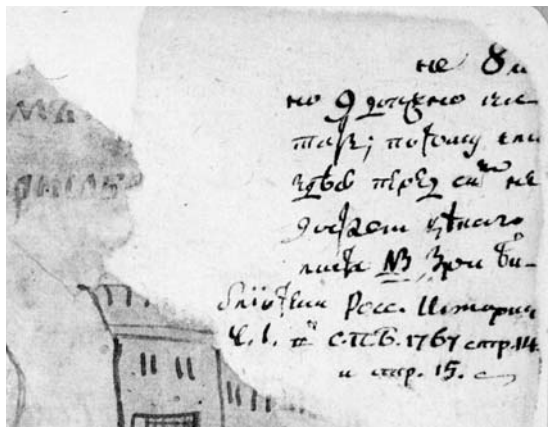 не
но должно чи-
тать; потому что
здѣсь перед симъ не
достает цѣлаго
листа Зри Би-
блїотеки Росс. Истории
Ч. I. С.П.Б. 1767 стр. 14
и стр. 15.